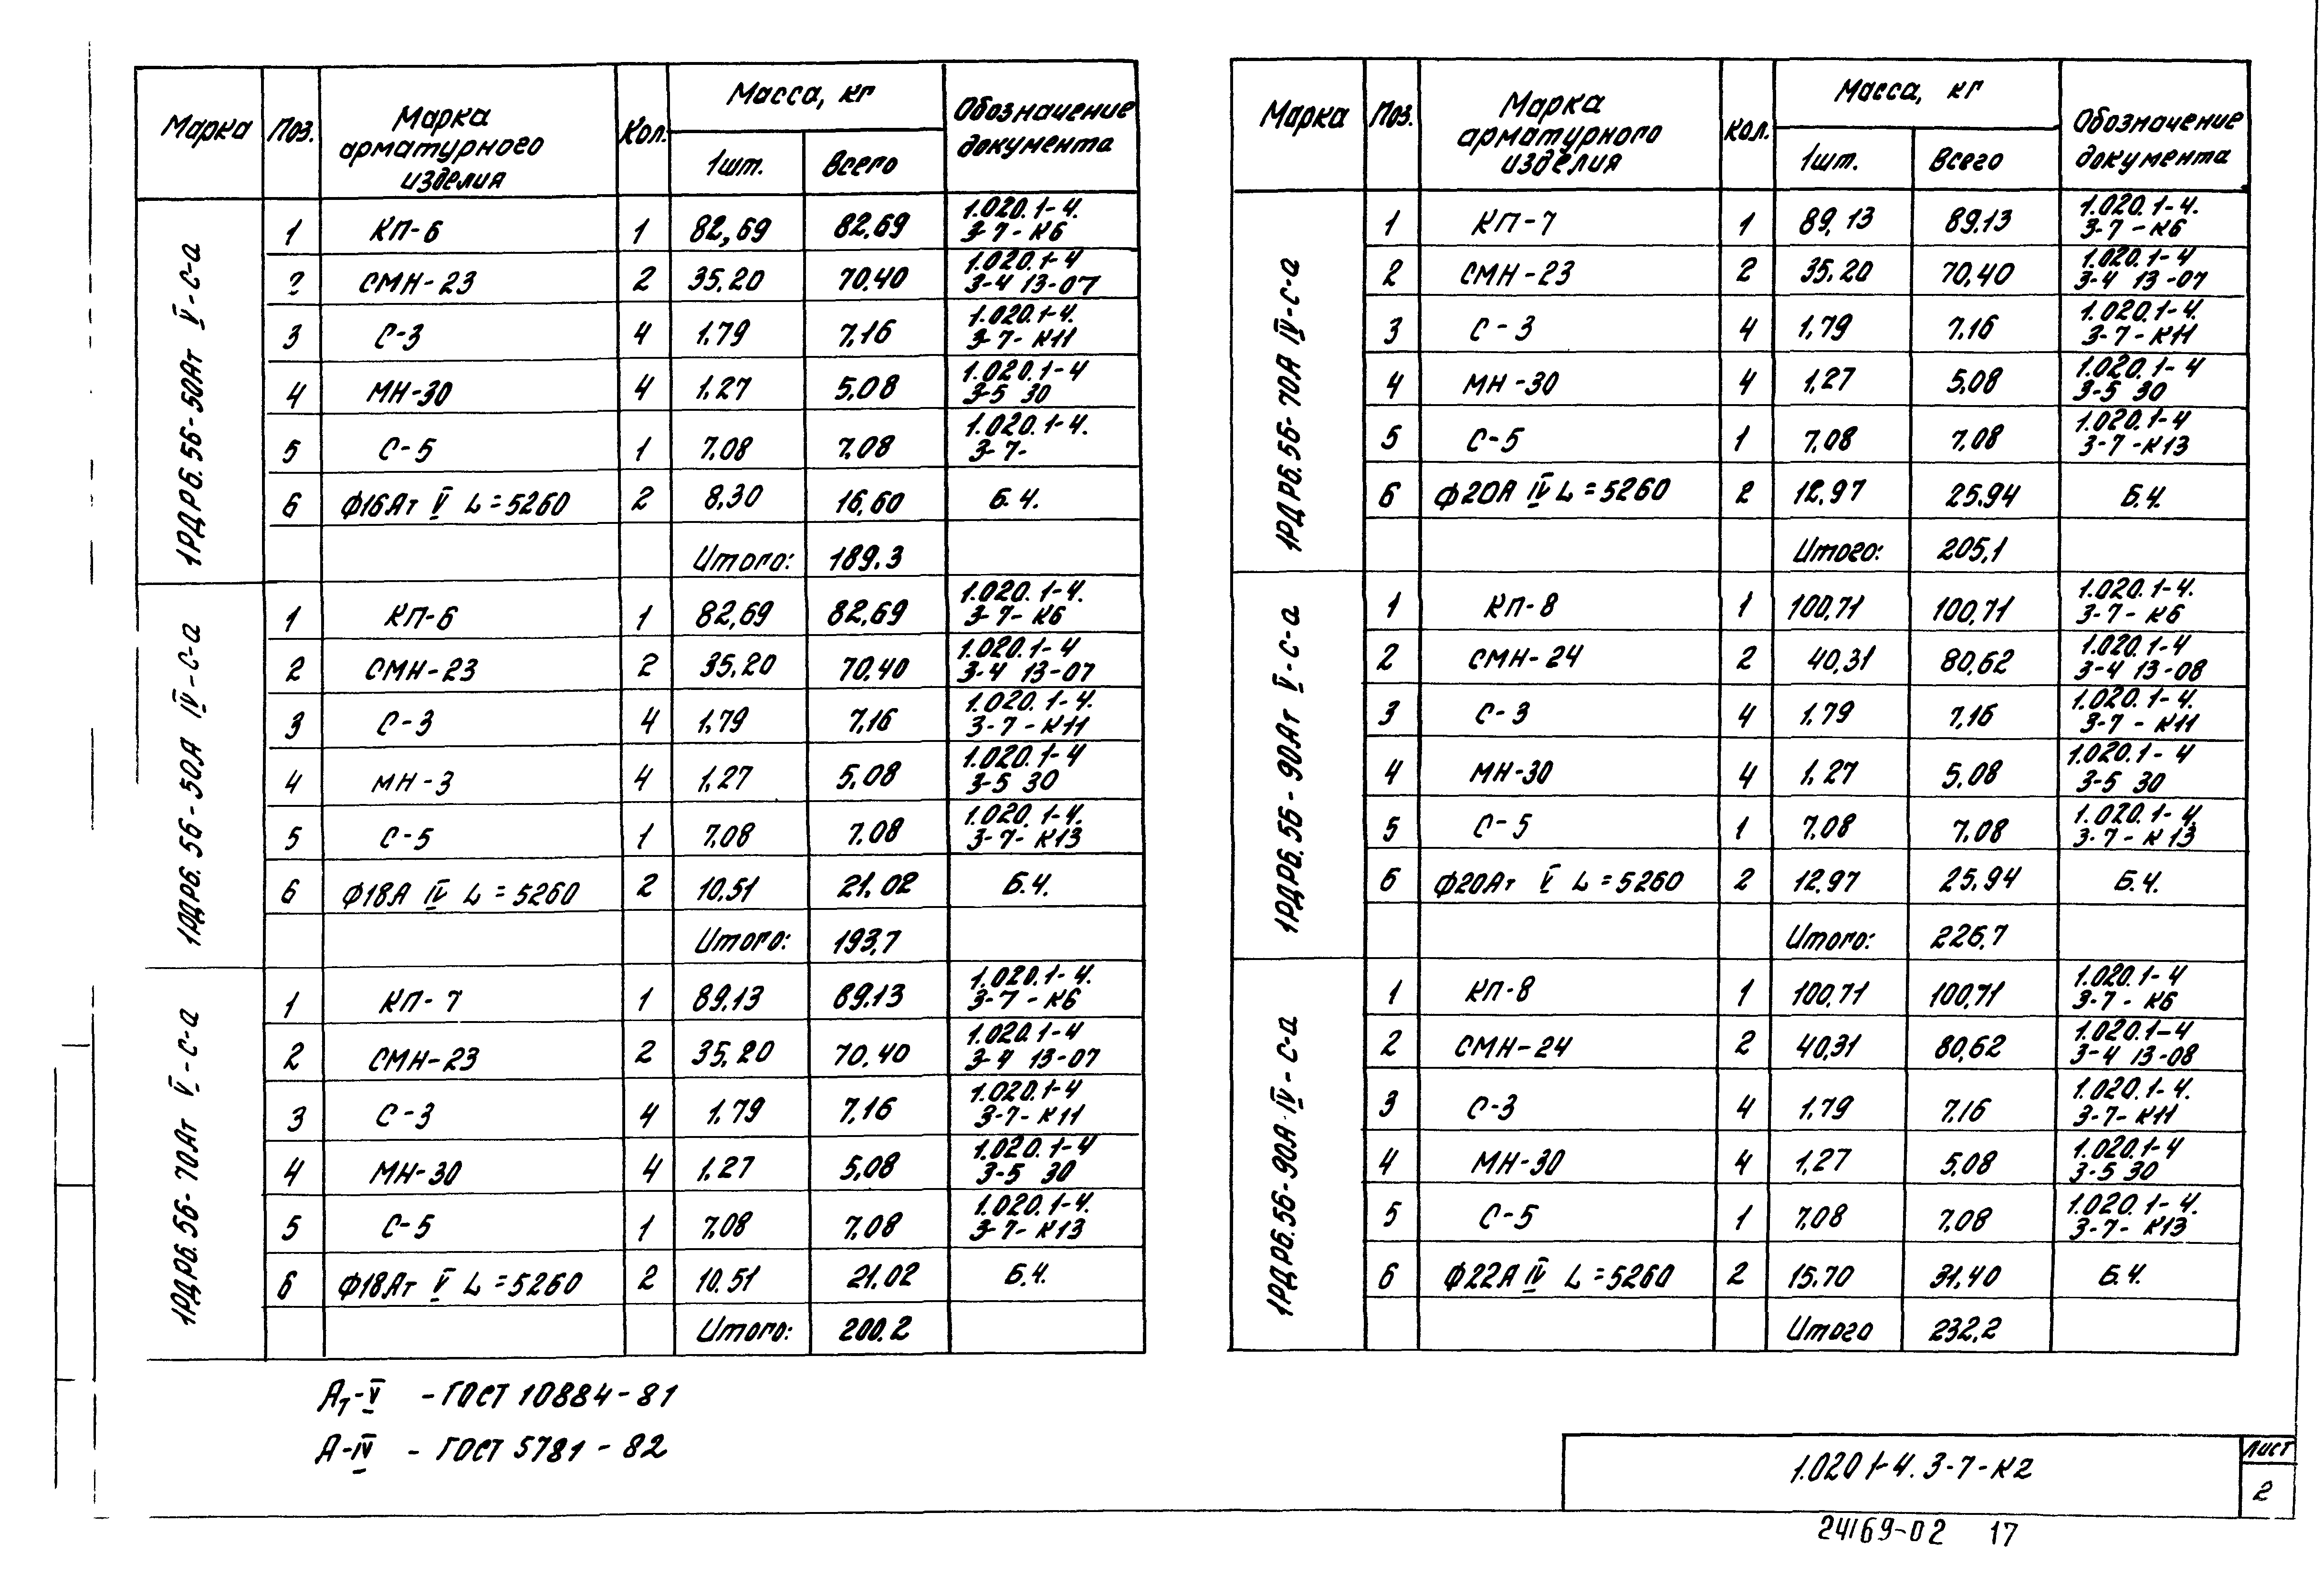 Марка Поз. Марка арматурного изделия Кол. Масса, кг Обозначение документа
1шт. Всего
1РДР6.56-50Ат V-с-а
1 КП-6 1 82,69 82.69 1.020.1-4. 3-7-К6
2 СМН-23 2 35.20 70.40 1.020.1-4 3-4 13-07
3 С-3 4 1.79 7,16 1.020.1-4. 3-7-К11
4 МН-30 4 1.27 5.08 1.020.1-4 3-5 30
5 С-5 1 7.08 7.08 1.020.1-4. 3-7-
6 Ф16Ат V L=5260 2 8.30 16,60 Б.Ч.
Итого: 189.3
1РДР6.56-50А IV-с-а
1 КП-6 1 82,69 82,69 1.020.1-4. 3-7-К6
2 СМН-23 2 35.20 70,40 1.020.1-4 3-4 13-07
3 С-3 4 1.79 7,16 1.020.1-4. 3-7-К11
4 МН-3 4 1,27 5,08 1.020.1-4 3-5 30
5 С-5 1 7.08 7.08 1.020.1-4. 3-7-К13
6 Ф18А IV L=5260 2 10.51 21.02 Б.Ч.
Итого: 193,7
1РДР6.56-70Ат V-с-а
1 КП-7 1 89.13 89.13 1.020.1-4. 3-7-К6
2 СМН-23 2 35.20 70.40 1.020.1-4 3-4 13-07
3 С-3 4 1.79 7,16 1.020.1-4 3-7-К11
4 МН-30 4 1.27 5,08 1.020.1-4 3-5 30
5 С-5 1 7,08 7,08 1.020.1-4. 3-7-К13
6 Ф18Ат V L=5260 2 10.51 21.02 Б.Ч.
Итого: 200.2
Ат-V - ГОСТ 10884-81
А-IV - ГОСТ 5781-82
Марка Поз. Марка арматурного изделия Кол. Масса, кг Обозначение документа
1шт. Всего
1РДР6.56-70А IV-с-а
1 КП-7 1 89,13 89.13 1.020.1-4. 3-7-К6
2 СМН-23 2 35.20 70,40 1.020.1-4 3-4 13-07
3 С-3 4 1.79 7.16 1.020.1-4. 3-7-К11
4 МН-30 4 1.27 5,08 1.020.1-4 3-5 30
5 С-5 1 7.08 7,08 1.020.1-4 3-7-К13
6 Ф20А IV L=5260 2 12.97 25.94 Б.Ч.
Итого: 205,1
1РДР6.56-90Ат V-с-а
1 КП-8 1 100,71 100,71 1.020.1-4. 3-7-К6
2 СМН-24 2 40,31 80,62 1.020.1-4 3-4 13-08
3 С-3 4 1.79 7,16 1.020.1-4. 3-7-К11
4 МН-30 4 1,27 5,08 1.020.1-4 3-5 30
5 С-5 1 7.08 7.08 1.020.1-4. 3-7-К13
6 Ф20Ат V L=5260 2 12.97 25.94 Б.Ч.
Итого: 226,7
1РДР6.56-90А-IV-с-а
1 КП-8 1 100,71 100,71 1.020.1-4 3-7-К6
2 СМН-24 2 40,31 80,62 1.020.1-4 3-4 13-08
3 С-3 4 1.79 7,16 1.020.1-4. 3-7-К11
4 МН-30 4 1,27 5,08 1.020.1-4 3-5 30
5 С-5 1 7,08 7,08 1.020.1-4. 3-7-К13
6 Ф22А IV L=5260 2 15.70 31.40 Б.Ч.
Итого 232,2
1.020 1-4. 3-7-К2
Лист
2
24169-02 17